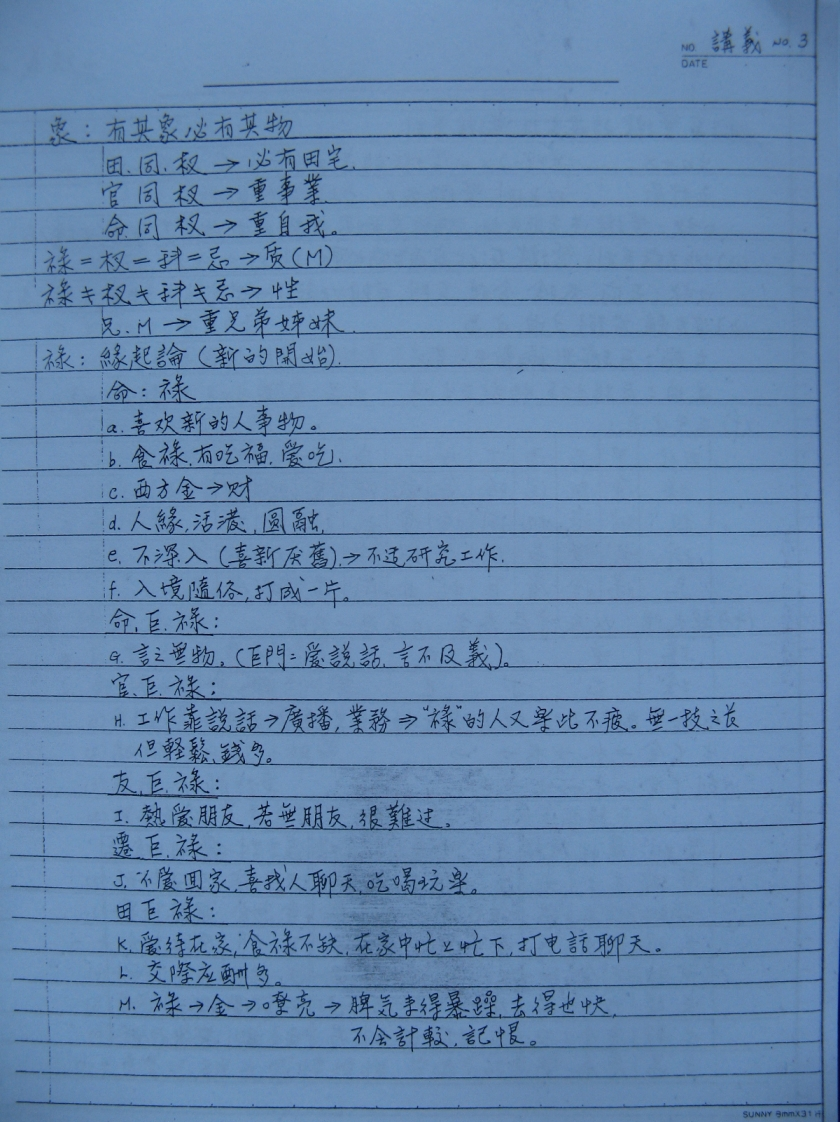 NO. 講義 NO. 3
DATE
象：有其象必有其物
田.同.权→必有田宅.
官同权→重事業.
命.同权→重自我。
祿=权=科=忌→质(M)
祿≠权≠科≠忌→性
兄.M→重兄弟姊妹.
祿：緣起論(新的開始).
命：祿
a.喜欢新的人事物。
b.食祿.有吃福.愛吃.
c.西方金→财
d.人緣,活潑,圓融.
e.不深入(喜新厌舊).→不适研究工作.
f.入境隨俗,打成一片。
命.巨.祿：
G.言之無物。(巨門=愛說話.言不及義)。
官.巨.祿：
H.工作靠説話→廣播,業務→"祿"的人又樂此不疲。無一技之长
但軽鬆,錢多。
友.巨.祿：
I.熱愛朋友,若無朋友,很難过。
遷.巨.祿：
J.不愛回家,喜找人聊天,吃喝玩樂。
田巨祿：
K.愛待在家,食祿不缺,在家中忙上忙下,打电話聊天。
L.交際应酬多。
M.祿→金→嘹亮→脾気来得暴躁,去得也快.
不会計較,記恨。
SUNNY 9mmX31